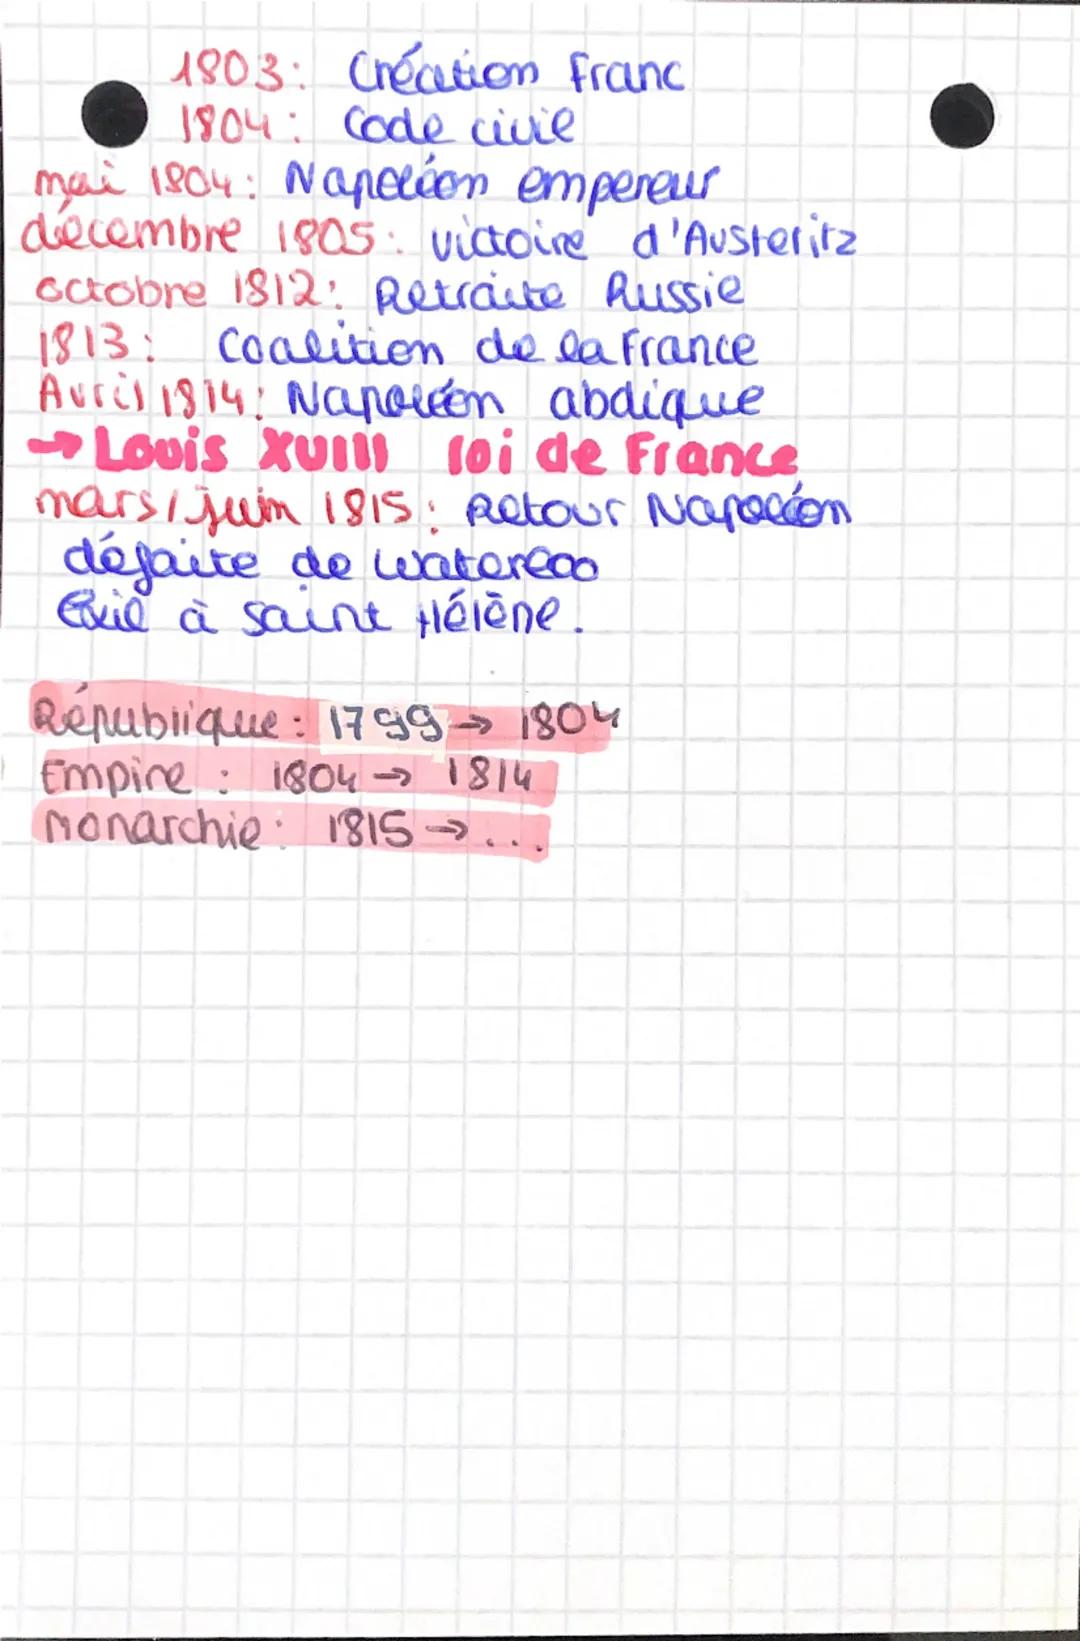 1803: Création Franc
1804: Code civil
mai 1804: Napoléon empereur
décembre 1805: victoire d'Austerlitz
octobre 1812: Retraite Russie
1813: Coalition de la France
Avril 1814: Napoléon abdique
→ Louis XVIII roi de France
mars/juin 1815: Retour Napoléon
défaite de Waterloo
Exil à Saint Hélène.
République: 1799 → 1804
Empire: 1804 → 1814
Monarchie: 1815 → ...